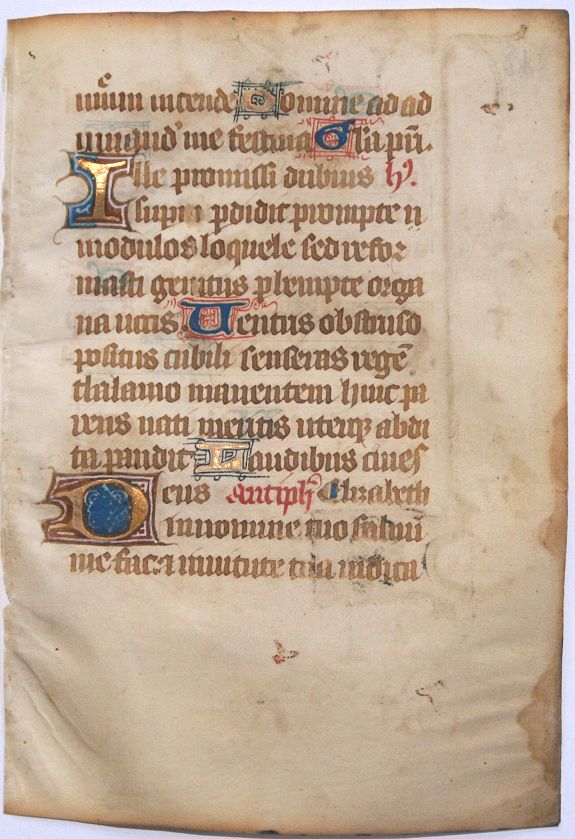 c
mum intende Domine ad ad
iuuand' me festina Glia pri.
Ille promissi dubius h̓.
supni pdidit prompte n
modulos loquele sed refor
masti genitus pempte orga
na uocis Uentris obstruso
positus cubili senseras regē
thalamo manentem hinc pa
rens nati meritis uterq abdi
ta pandit Laudibus ciues
Deus Antiph Elizabeth
in nomine tuo saluū
me fac & in uirtute tua iudica